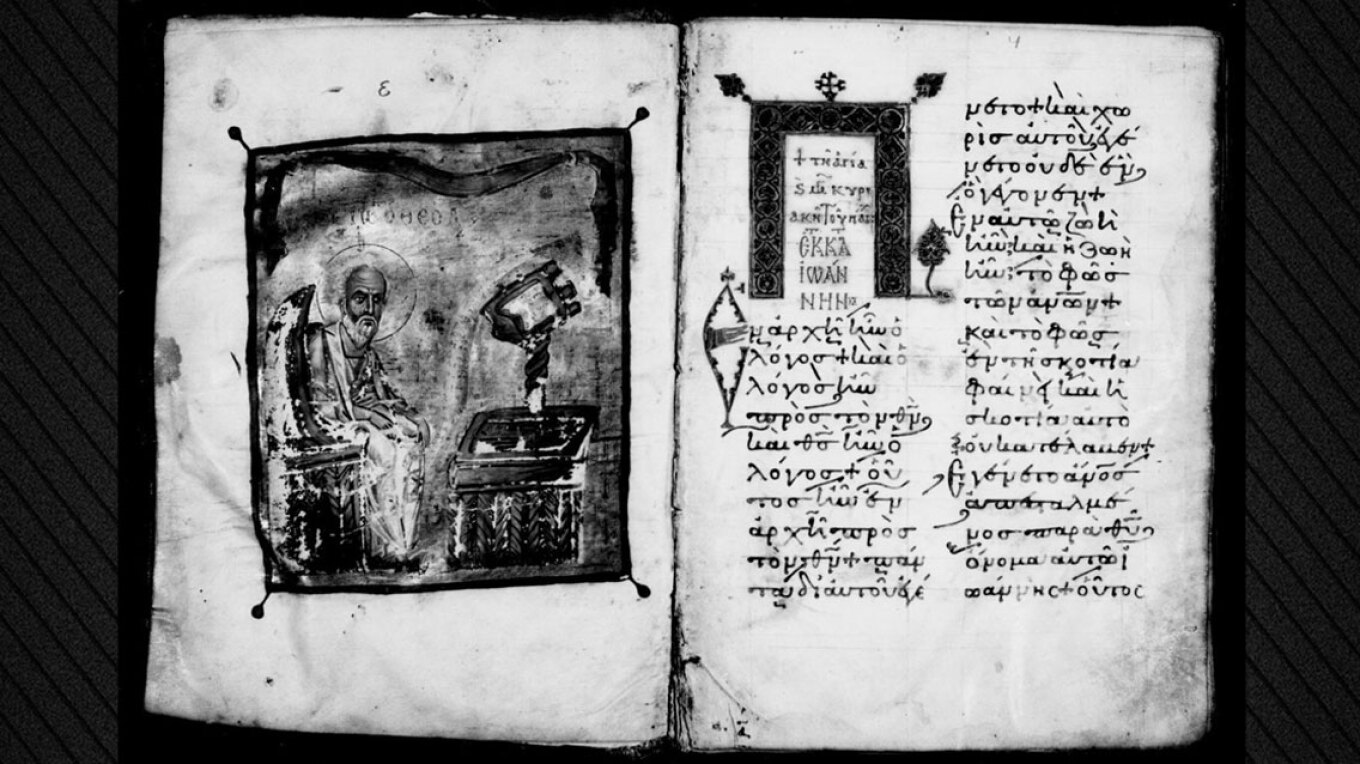 ε
ΘΕΟΛ
+ τῇ ἁγία
κυρι
ακῇ τοῦ
ΕΚ Κ
ΙΩΑΝ
ΝΗΝ
Ἐν ἀρχῆ ἦν ὁ
λόγος + καὶ ὁ
λόγος ἦν
πρὸς τὸν θ̅ν̅
καὶ θ̅ς̅ ἦν ὁ
λόγος + οὗ
τος ἦν ἐν
ἀρχῆ πρὸς
τὸν θ̅ν̅ + πάν
τα δι αὐτοῦ ἐγέ
νετο + καὶ χω
ρὶς αὐτοῦ ἐγέ
νετο οὐδὲ ἓν
ὃ γέγονεν +
Ἐν αὐτῶ ζωὴ
ἦν καὶ ἡ ζωὴ
ἦν τὸ φῶς
τῶν ἀ̅ν̅ω̅ν̅ +
καὶ τὸ φῶς
ἐν τῆ σκοτία
φαίνει καὶ ἡ
σκοτία αὐτὸ
οὐ κατέλαβεν +
Ἐγένετο ἀ̅ν̅ο̅ς̅
ἀπεσταλμέ
νος παρὰ θ̅υ̅
ὄνομα αὐτῶ ἰ
ωάννης + οὗτος